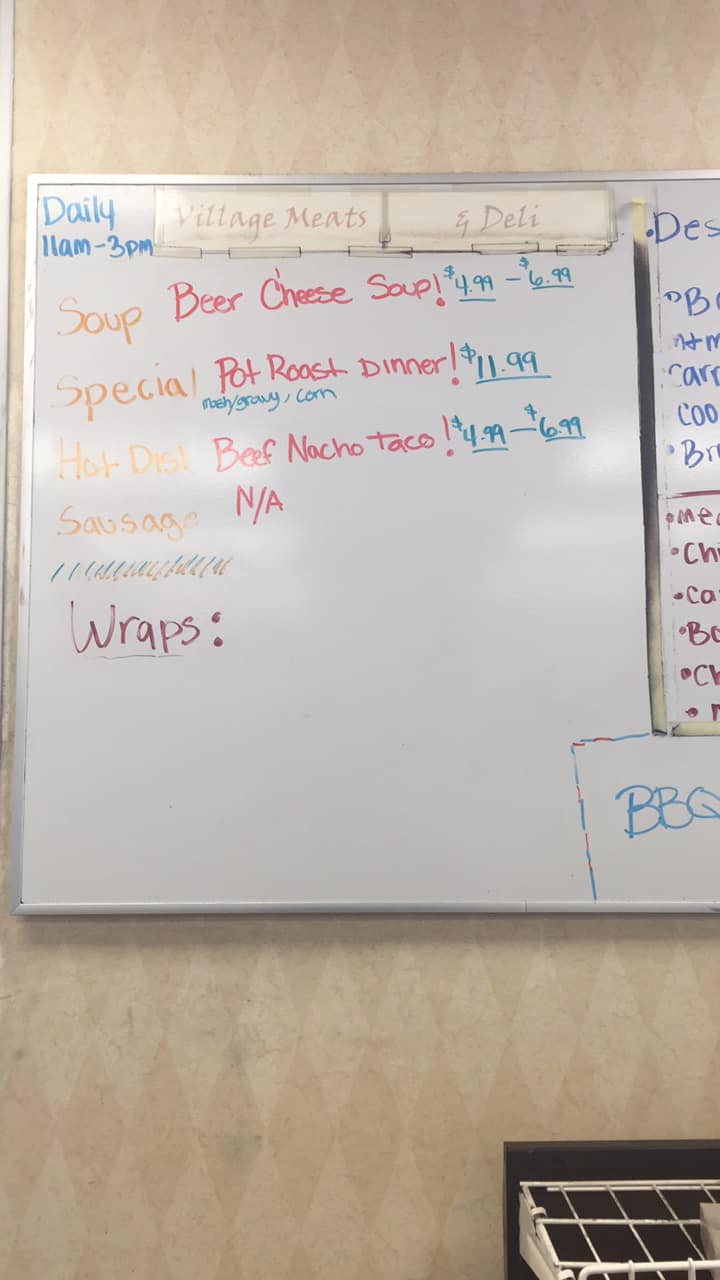 Daily
11am-3pm
Village Meats & Deli
Soup Beer Cheese Soup! $4.99 - $6.99
Special Pot Roast Dinner! $11.99
mash/gravy, corn
Hot Dish Beef Nacho Taco! $4.99 - $6.99
Sausage N/A
Wraps:
Des
Bo
Carr
Coo
Br
Me
Ch
Ca
Bo
Ch
BBQ